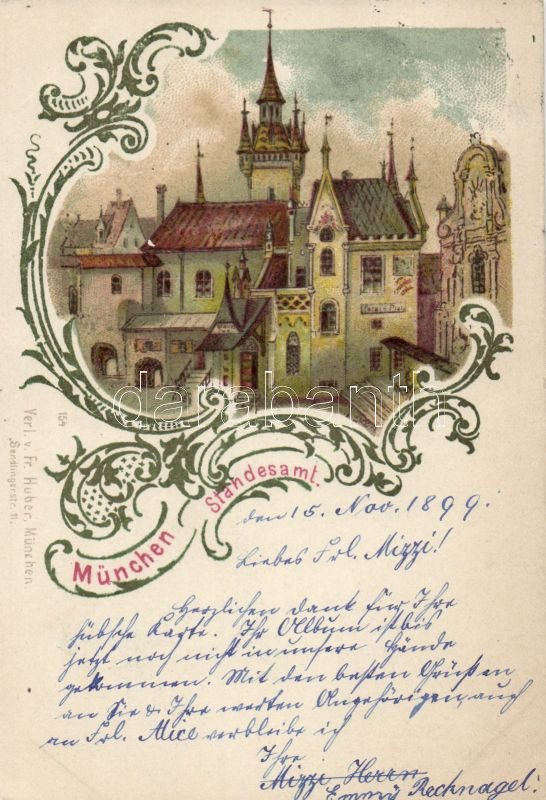 Petersplatz
darabanth
154
Verl. v. Fr. Huber, München
Sendlingerstr. 11.
München
Standesamt.
den 15. Nov. 1899.
Liebes Frl. Mizzi!
Herzlichen dank für Ihre
hübsche Karte. Ihr Album ist bis
jetzt noch nicht in unsere Hände
gekommen. Mit den besten Grüßen
an Sie & Ihre werten Angehörigen, auch
an Frl. Alice verbleibe ich
Ihre
Mizzi Herrn
Emmy Recknagel.